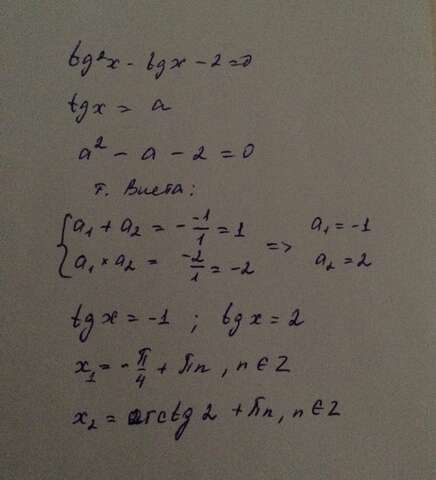 tg²x - tgx - 2 = 0
tgx = a
a² - a - 2 = 0
т. Виета:
{ a₁ + a₂ = - -1/1 = 1 => a₁ = -1
a₁ × a₂ = -2/1 = -2 a₂ = 2
tgx = -1 ; tgx = 2
x₁ = - π/4 + πn , n ∈ Z
x₂ = arctg 2 + πn, n ∈ Z